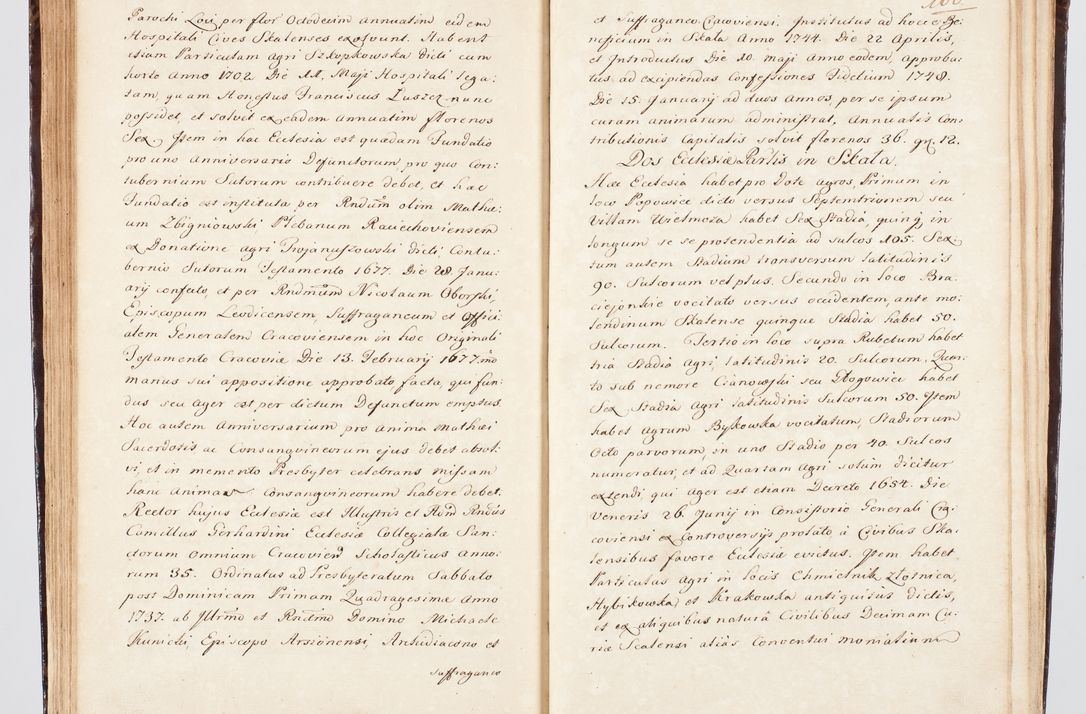 Parochi Loci per flor Octodecim annuatim eidem
Hospitali Cives Skalenses exolvunt. Habent
etiam Particulam agri Szkopkowska dicti cum
horto Anno 1702 Die 11. Maji Hospitali lega-
tam, quam Honestus Franciscus Łuszcz nunc
possidet, et solvit ex eadem annuatim florenos
Sex. Item in hac Ecclesia est quædam Fundatio
pro uno Anniversario Defunctorum pro quo Con-
tubernium Sutorum contribuere debet, et hæc
Fundatio est instituta per Rndum olim Mathæ-
um Zbigniowski Plebanum Raciechoviensem
ex Donatione agri Trojanuszowski dicti, Contu-
bernio Sutorum Testamento 1677. Die 28 Janu-
arij confecto, et per Rndmum Nicolaum Oborski,
Episcopum Leodicensem, Suffraganeum et Offici-
alem Generalem Cracoviensem in hoc Originali
Testamento Cracoviæ Die 13. Februarij 1677. mo
manus sui appositione approbato facta, qui fun-
dus seu ager est, per dictum Defunctum emptus.
Hoc autem Anniversarium pro anima Mathæi
Sacerdotis ac Consangvineorum ejus debet absol-
vi, et in memento Presbyter celebrans missam
hanc animas Consangvineorum habere debet.
Rector hujus Ecclesiæ est Illustris et Adm Rndus
Camillus Gerhardini Ecclesiæ Collegiatæ San-
ctorum Omnium Cracovien Scholasticus Anno-
rum 35. Ordinatus ad Presbyteratum Sabbato
post Dominicam Primam Quadragesimæ Anno
1737. ab Illrmo et Rndmo Domino Michaele
Kunicki, Episcopo Arsionensi, Archidiacono et
Suffraganeo
et Suffraganeo Cracoviensi. Institutus ad hocce Be-
neficium in Skala Anno 1744. Die 22 Aprilis,
et Introductus Die 10. maji Anno eodem, approba-
tus ad excipiendas Confessiones Fidelium 1748.
Die 15. Januarij ad duos annos, per se ipsum
curam animarum administrat, Annuatis Con-
tributionis Capitalis solvit florenos 36. gr. 12.
Dos Ecclesiæ Partis in Skala.
Hæc Ecclesia habet pro Dote agros, Primum in
loco Popowice dicto versus Septentrionem seu
Villam Wielmoza habet Sex Stadia, quinq in
longum se se protendentia ad sulcos 105. Sex-
tum autem Stadium transversum latitudinis
90. Sulcorum vel plus. Secundo in loco Bra-
ciejonskie vocitato versus occidentem, ante mo-
lendinum Skalense quinque Stadia habet 50.
Sulcorum. Tertio in loco supra Rubetum habet
tria Stadia agri, latitudinis 20. Sulcorum. Quar-
to sub nemore Cianowski seu Głogowiec habet
Sex Stadia agri latitudinis Sulcorum 50. Item
habet agrum Bykowska vocitatum, Stadiorum
Octo parvorum, in uno Stadio per 40. Sulcos
numeratur, et ad Quartam agri solum dicitur
extendi, qui ager est etiam Decreto 1654. Die
Veneris 26. Junij in Consistorio Generali Cra-
coviensi ex Controversijs prolato à Civibus Ska-
lensibus favore Ecclesiæ evictus. Item habet
Particulas agri in locis Chmielnik, Złotnica,
Hybikowska, et Krakowska antiquitus dictis,
et ex aliquibus naturâ Civilibus Decimam Cu-
riæ Scalensi aliàs Conventui monialium